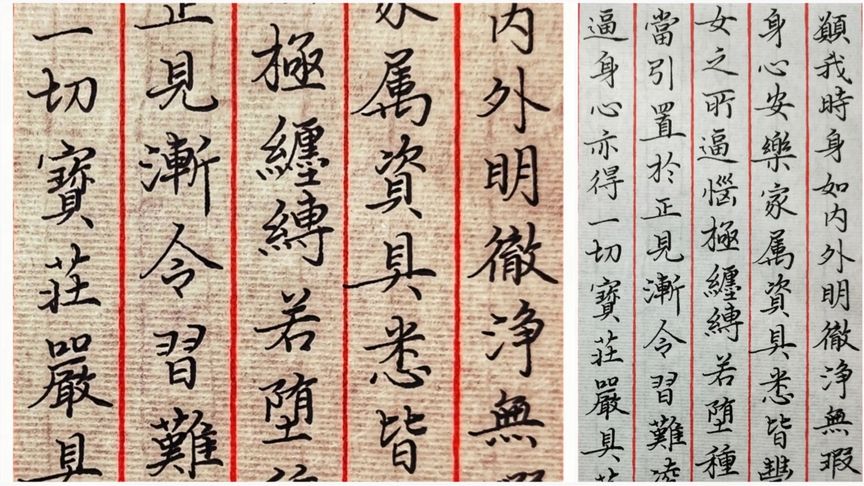 内外明徹浄無
家属資具悉皆
極纏縛若堕種
正見漸令習難
一切寶莊嚴具
願我時身如内外明徹浄無瑕
身心安樂家属資具悉皆豐
女之所逼惱極纏縛若堕種
當引置於正見漸令習難
逼身心亦得一切寶莊嚴具